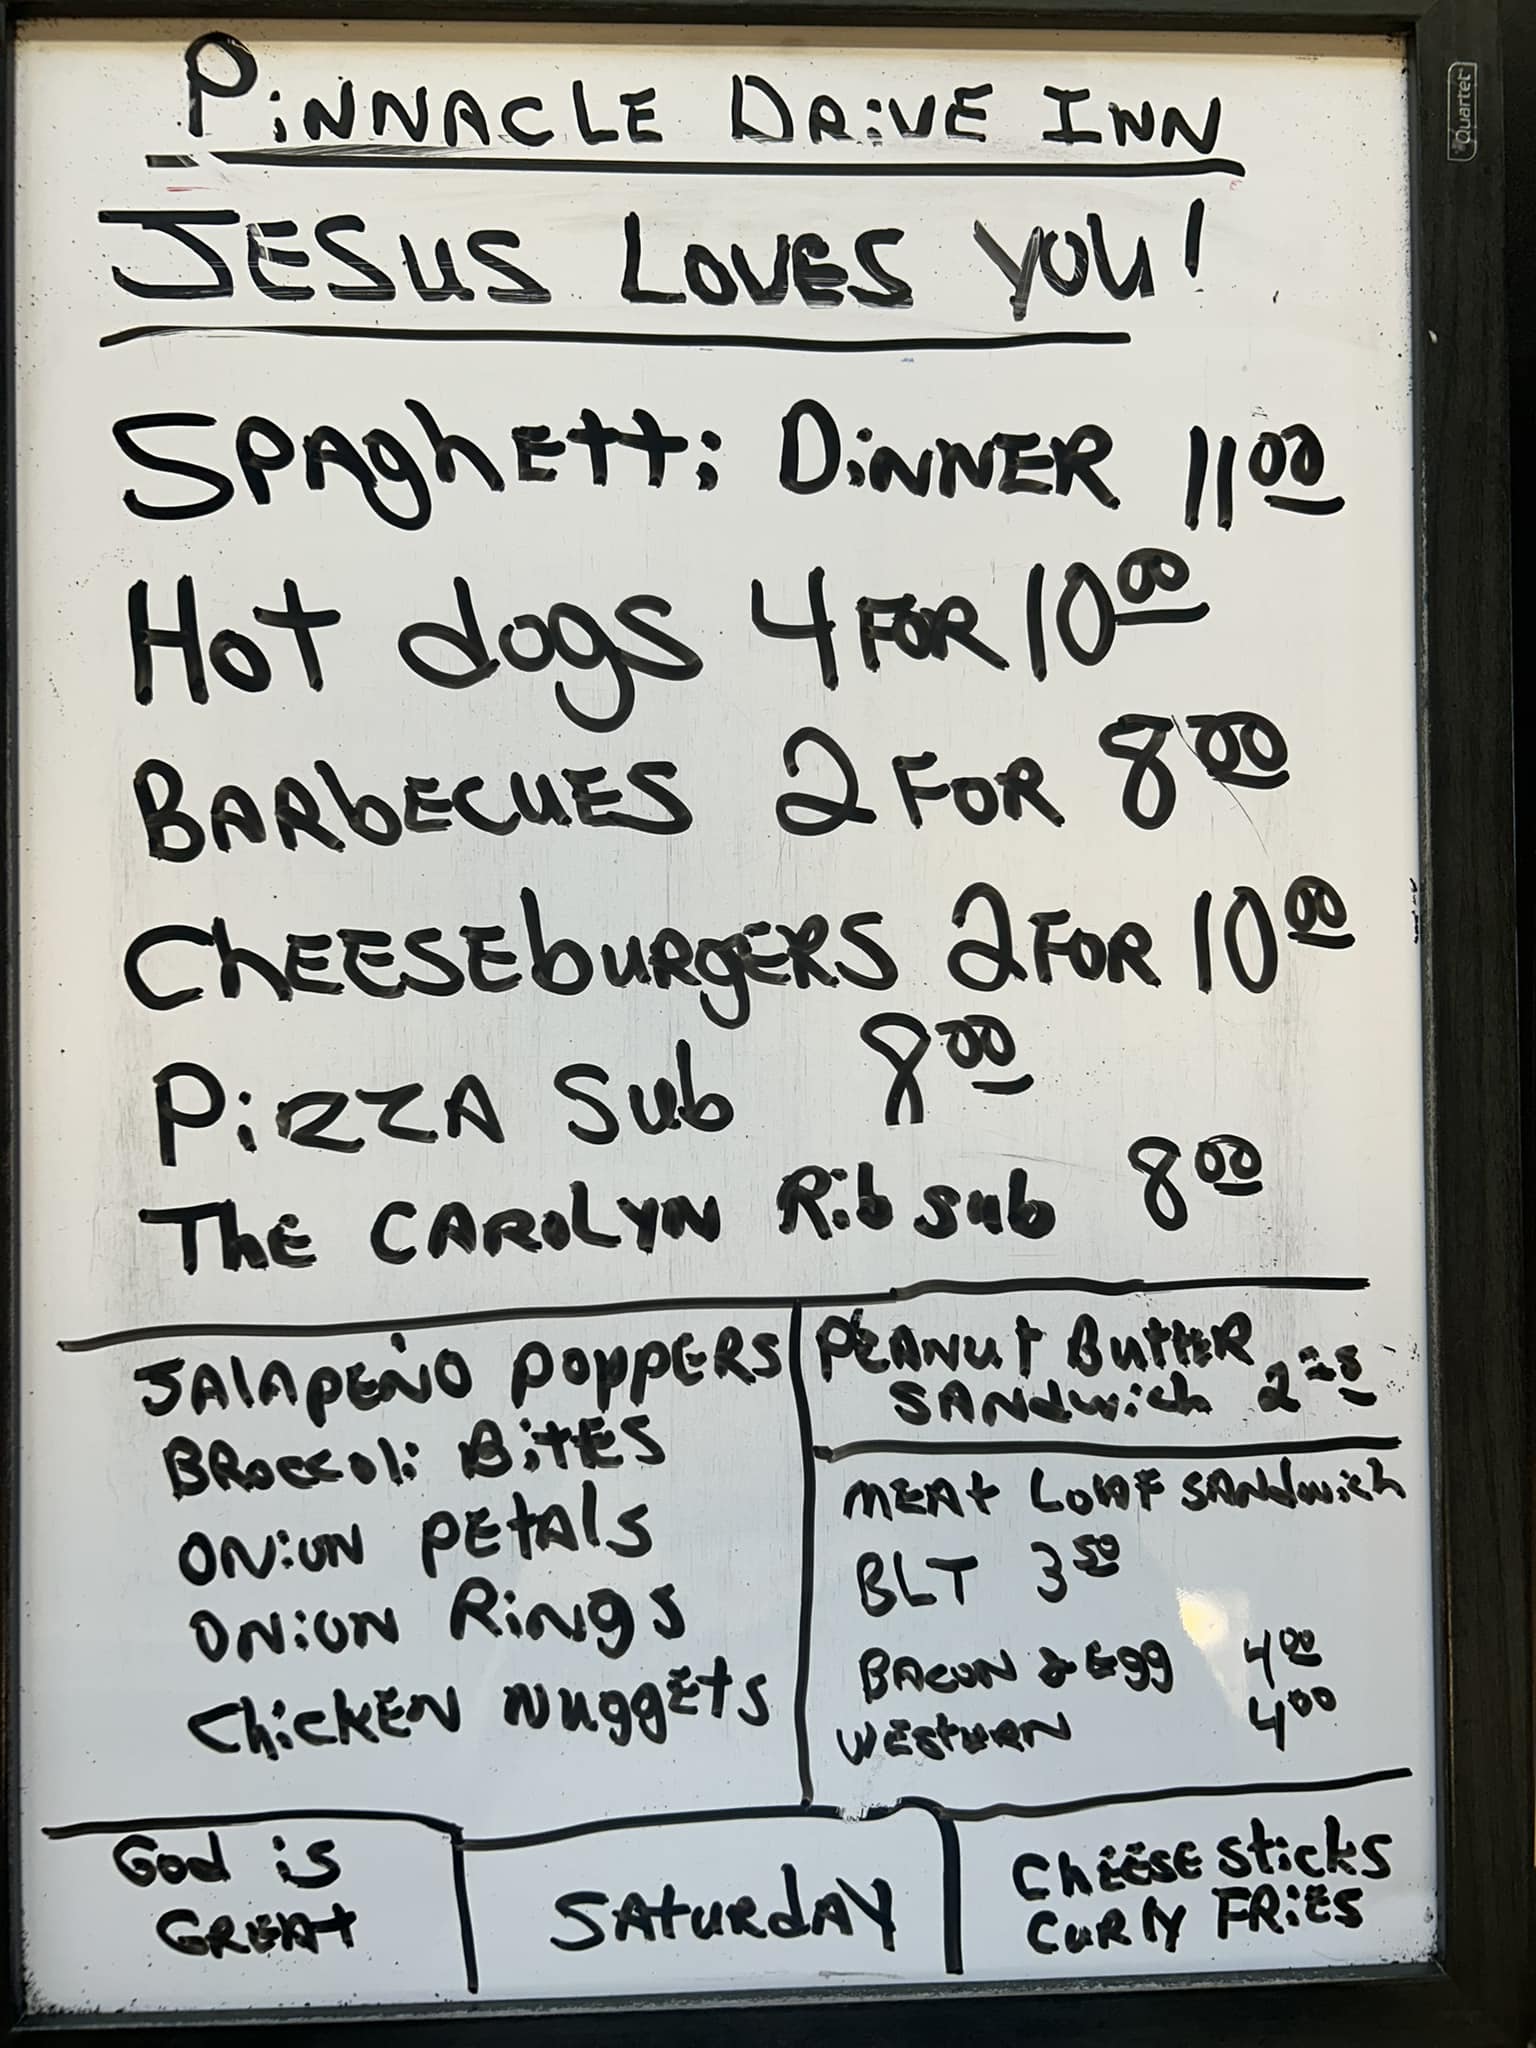 Quartet
PiNNACLE DRiVE INN
JESUS LOVES YOU!
SPAghEtti DiNNER 11 00
Hot dogs 4 FOR 10 00
BARbECUES 2 FOR 8 00
ChEESEbuRgERS 2 FOR 10 00
PiZZA Sub 8 00
ThE CAROLYN Rib sub 8 00
JAlAPEÑO POPPERS
BROCCOli BitES
ONiON PEtAlS
ONiON RiNgS
ChicKEN NuggEtS
PEANut ButtER
SANdwich 2
MEAt LOAF SANdwich
BLT 3 50
BACON & Egg 4 00
WEStURN 4 00
God is
GREAt
SAtURdAY
ChEESE SticKS
CuRly FRiES